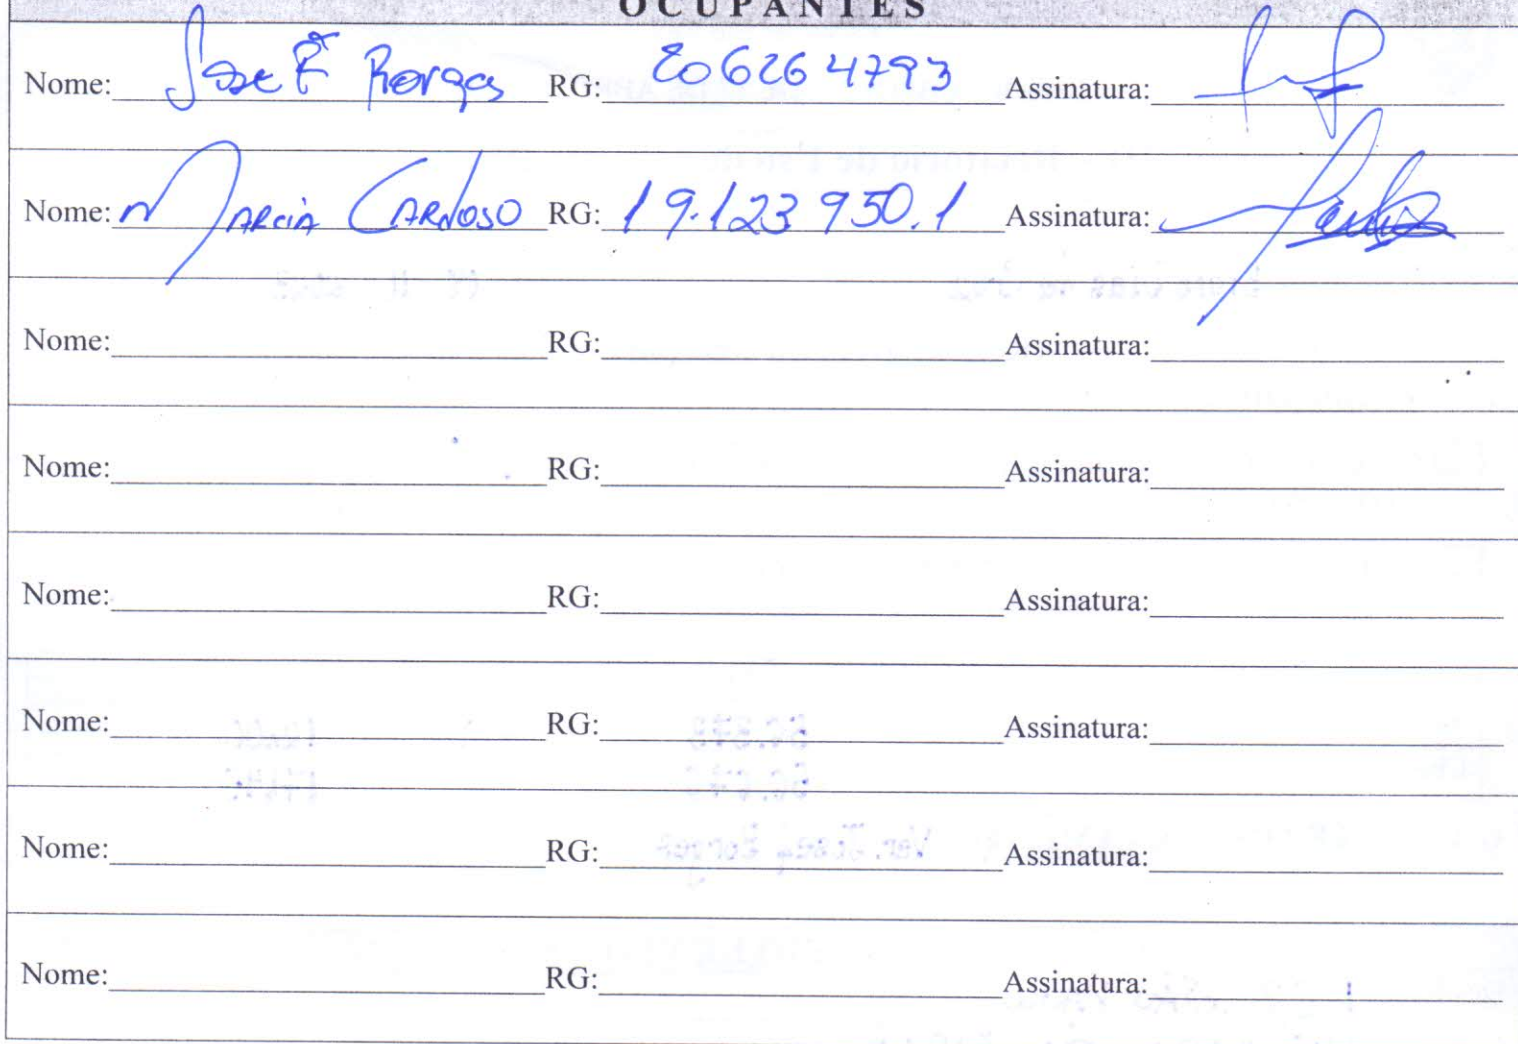 OCUPANTES
Nome: José Rº Borges RG: 206264793 Assinatura:
Nome: MARCIA CARDOSO RG: 19.123 950.1 Assinatura:
Nome: RG: Assinatura:
Nome: RG: Assinatura:
Nome: RG: Assinatura:
Nome: RG: Assinatura:
Nome: RG: Assinatura:
Nome: RG: Assinatura: